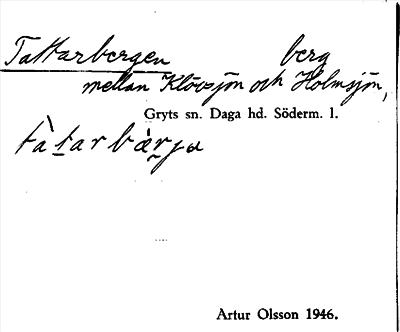 Tattarbergen berg
mellan Klövsjön och Holmsjön,
Gryts sn. Daga hd. Söderm. l.
Artur Olsson 1946.